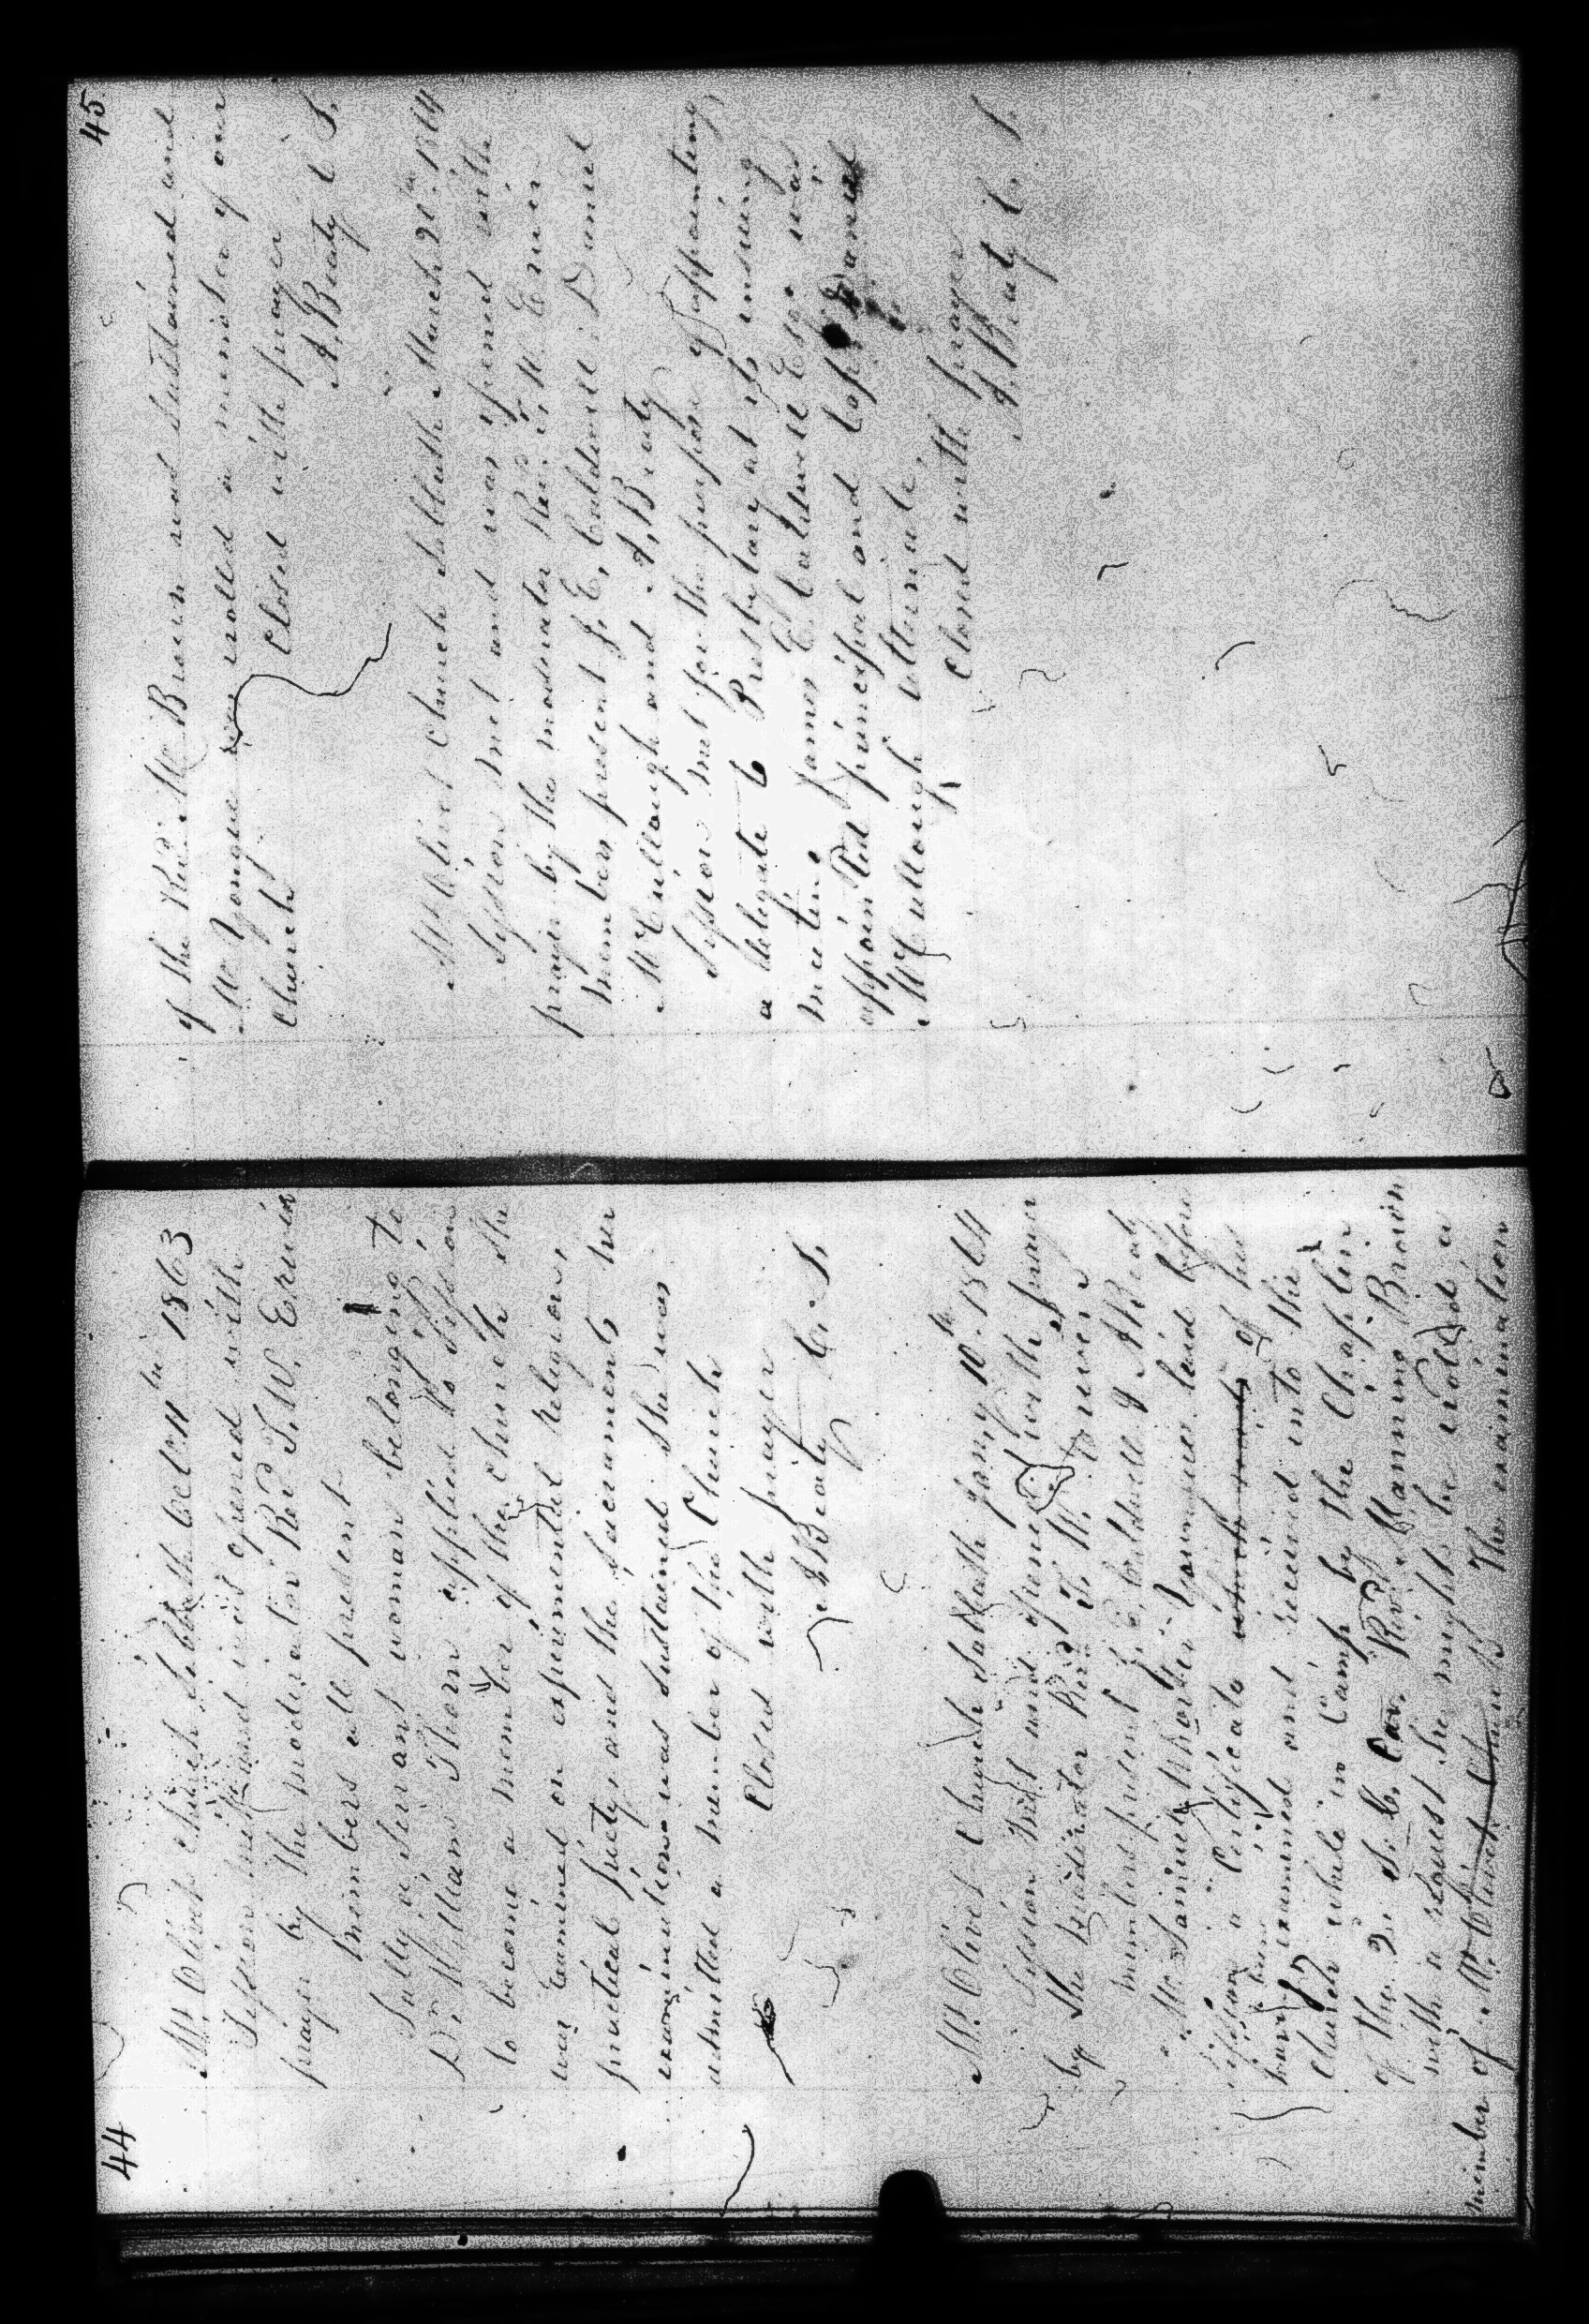 44
Mt. Olivet Church Sabbath Oct. 11th 1863
Session met and was opened with
prayer by the moderator Revd. T. W. Erwin
Members all present
Sally a servant woman belonging to
Dr. William Thorn applied to Session
to become a member of the church She
was Examined on experimental Religion,
practical piety, and the Sacraments her
examination was Sustained She was
admitted a member of the Church
Closed with prayer
A Beaty C. S.
Mt. Olivet Church Sabbath Jany. 10th 1864
Session met and opened with prayer
by the Moderator Revd. T. W. Erwin
members present J. E. Caldwell & A Beaty
Mr. Samuel Yongue laid before
Session a Certificate which reads of his
having been examined and received into the
Church while in Camp by the Chaplin
of the 2d. S. C. Cav. Revd. Manning Brown
with a request he might be enrolled a
member of Mt. Olivet Church The examination
45
of the Revd. M Brown was Sustained and
Mr Yongue was enrolled a member of our
Church Closed with prayer
A. Beaty C S.
Mt Olivet Church Sabbath March 20th. 1864
Session met and was opened with
prayer by the moderator Revd. T. W Erwin
members present J. E. Caldwell Daniel
McCullough and A, Beaty
Session met for the purpose of appointing
a delegate to Presbytary at its ensuing
meeting James E. Caldwell Esqr. was
appointed principal and Capt Daniel
McCullough alternate,
Closed with prayer
A. Beaty C. S.